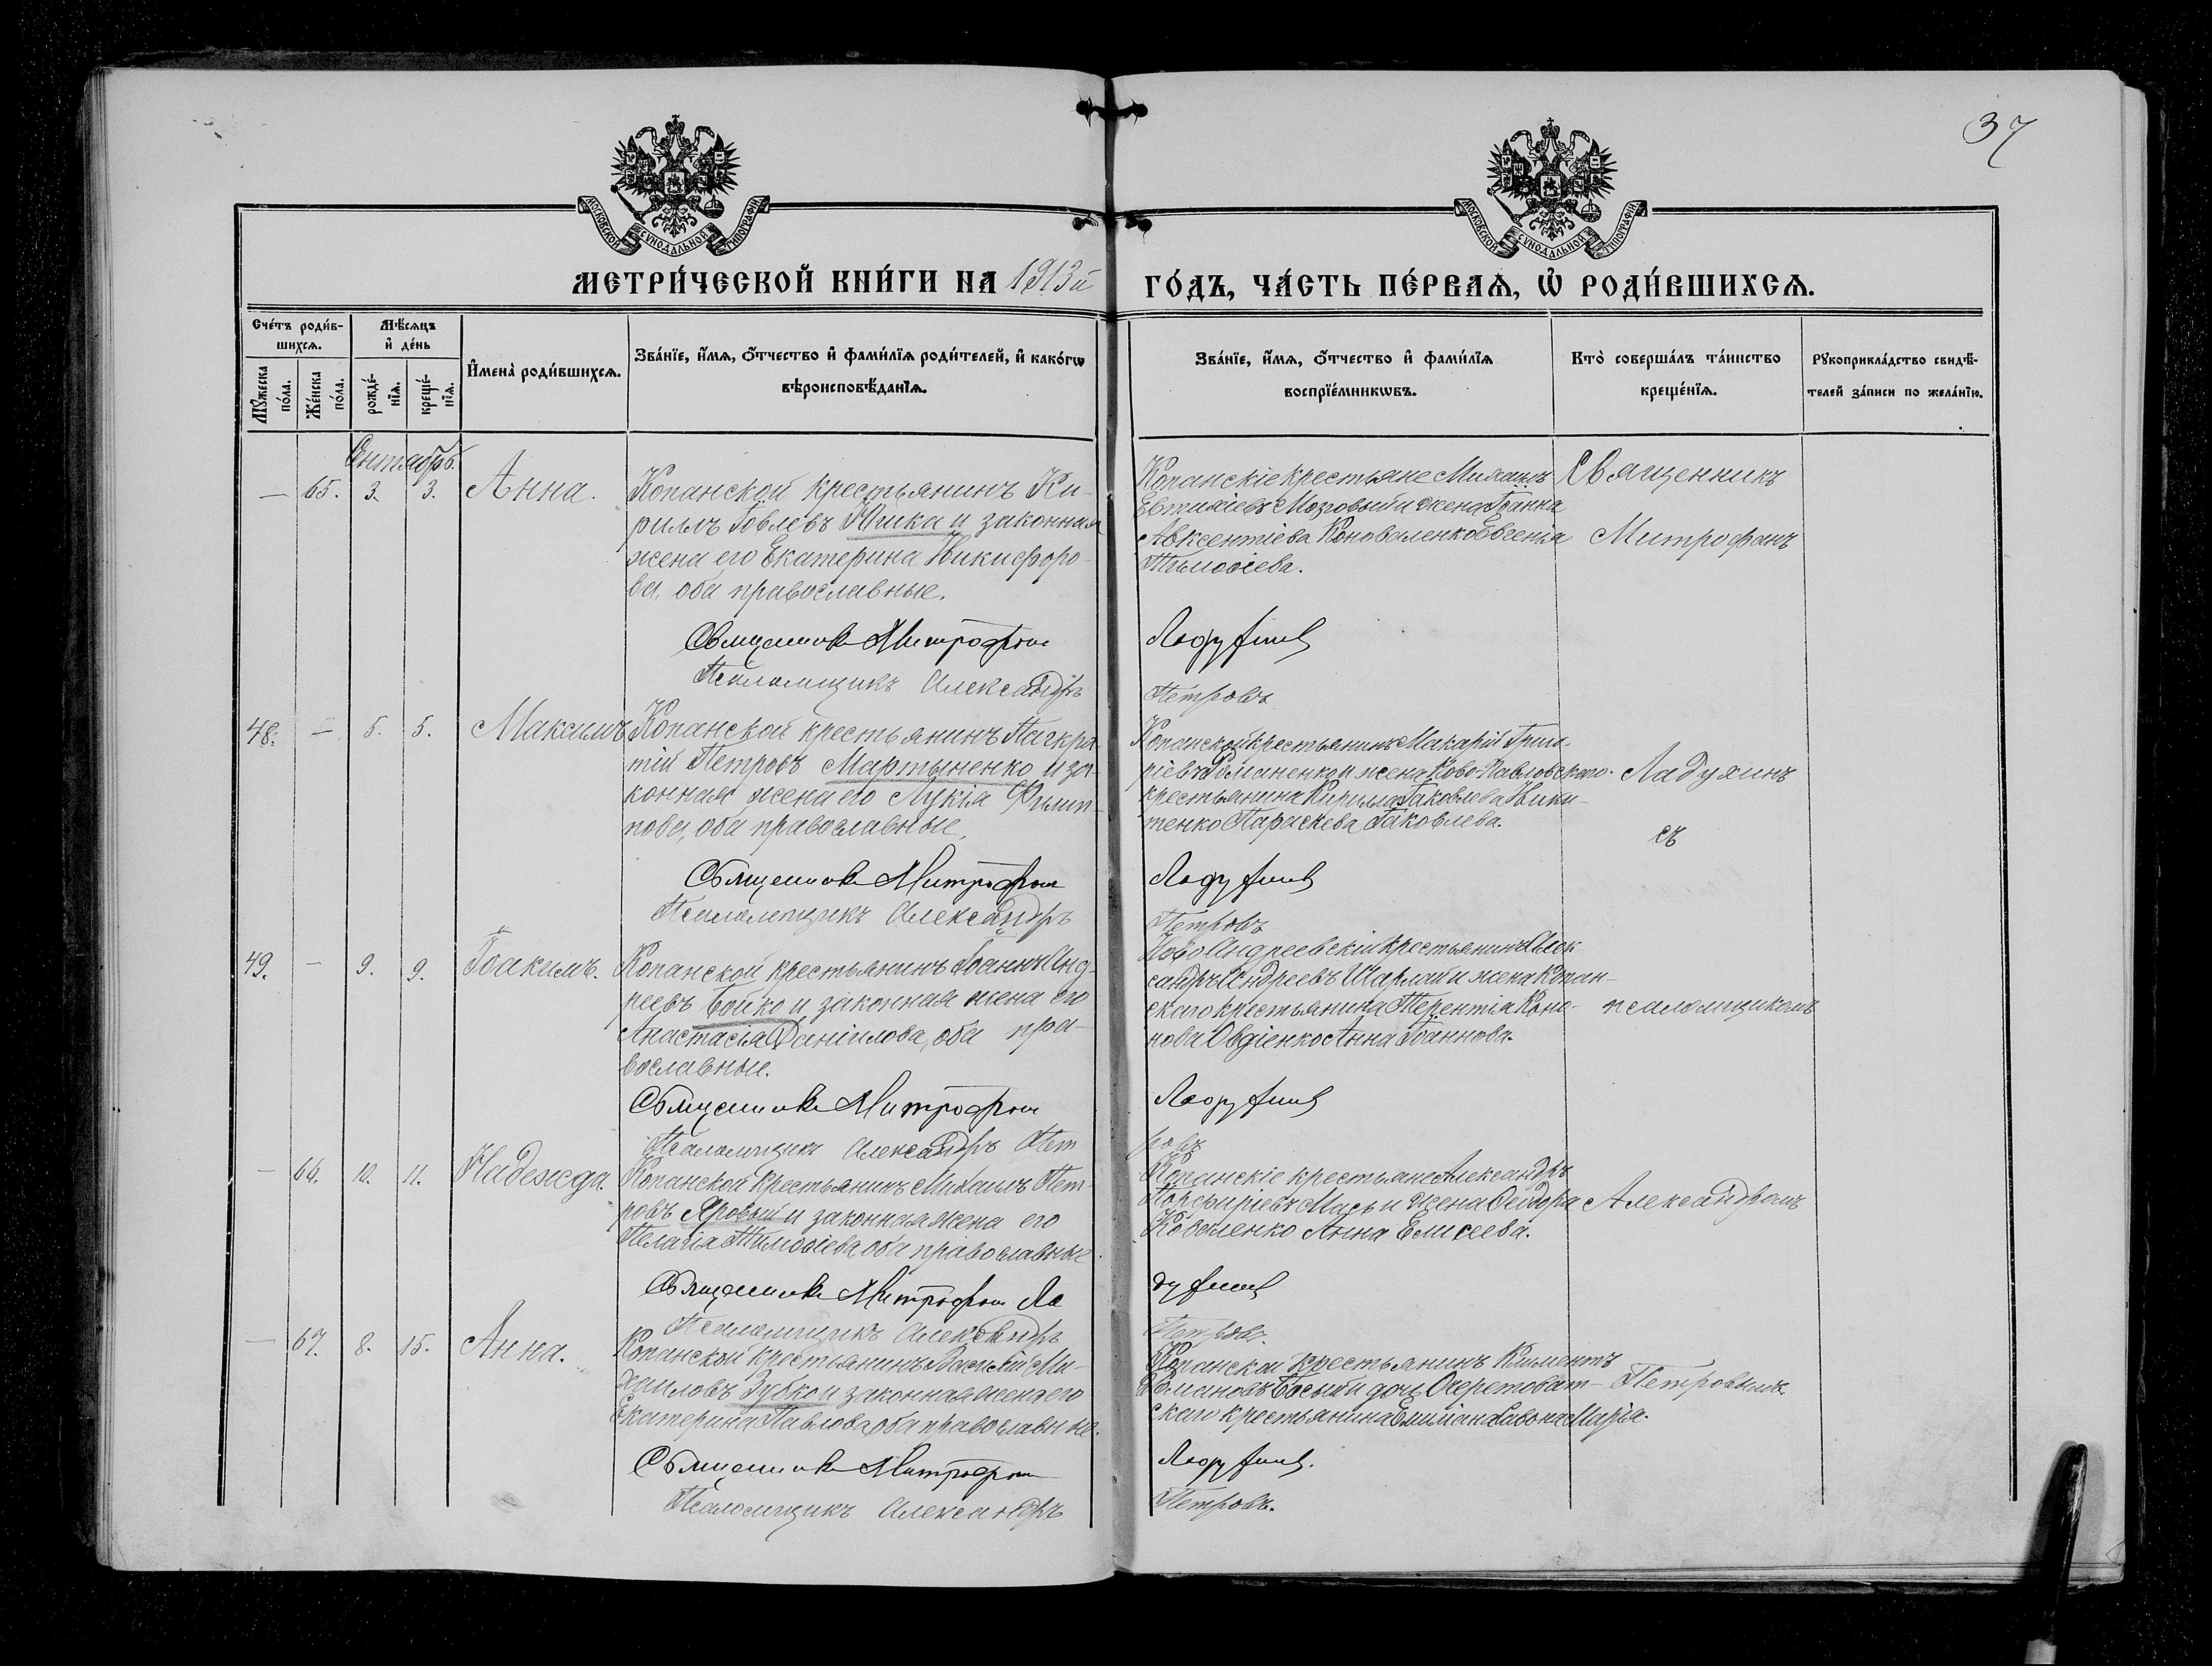 37
МОСКОВСКОЙ СѴНОДАЛЬНОЙ ТИПОГРАФІИ
МОСКОВСКОЙ СѴНОДАЛЬНОЙ ТИПОГРАФІИ
МЕТРИ́ЧЕСКОЙ КНИ́ГИ НА 1913й ГО́ДЪ, ЧА́СТЬ ПЕ́РВАѦ, Ѽ РОДИ́ВШИХСѦ.
Сче́тъ роди́в-
шихсѧ.
Мѣ́сѧцъ
и҆ де́нь
Мꙋ́жеска
по́ла.
Же́нска
по́ла.
рожде́-
нїѧ.
креще́-
нїѧ.
И҆мена̀ роди́вшихсѧ.
Зва́нїе, и҆́мѧ, ѻ҆́тчество и҆ фами́лїѧ роди́телей, и҆ како́гѡ
вѣроисповѣ́данїѧ.
Зва́нїе, и҆́мѧ, ѻ҆́тчество и҆ фами́лїѧ
воспрїе́мникѡвъ.
Кто̀ соверша́лъ та́инство
креще́нїѧ.
Рꙋкоприкла́дство свидѣ́-
телей за́писи по жела́нїю.
Сентябрь.
— 65. 3. 3. Анна.
Копанской крестьянинъ Ки-
риллъ Іовлевъ Югика и законная
жена его Екатерина Никифоро-
ва, оба православные.
Священникъ Митрофанъ
Псаломщикъ Александръ
Копанскіе крестьяне Михаилъ
Евтихіевъ Мозговый и жена Іоанна
Авксентіева Коноваленко Евгенія
Тимоѳіева.
Ладухинъ
Петровъ
Священникъ
Митрофанъ
48. — 5. 5. Максимъ
Копанской крестьянинъ Панкра-
тій Петровъ Мартыненко и за-
конная жена его Лукія Филип-
пова, оба православные.
Священникъ Митрофанъ
Псаломщикъ Александръ
Копанской крестьянинъ Макарій Григо-
ріевъ Романенко и жена Ново-Павловскаго
крестьянина Кирилла Іаковлева Ники-
тенко Параскева Іаковлева.
Ладухинъ
Петровъ
Ладухинъ
съ
49. — 9. 9. Іоакимъ.
Копанской крестьянинъ Іоаннъ Анд-
реевъ Бойко и законная жена его
Анастасія Даніилова, оба пра-
вославные.
Священникъ Митрофанъ
Псаломщикъ Александръ Пет
Ново Андреевскій крестьянинъ Алек
сандръ Андреевъ Шарлай и жена Копан-
скаго крестьянина Терентія Коно-
нова Овдіенко Анна Іоаннова.
Ладухинъ
ровъ
псаломщикомъ
— 66. 10. 11. Надежда.
Копанской крестьянинъ Михаилъ Пет-
ровъ Яровый и законная жена его
Пелагія Тимоѳіева, оба православные.
Священникъ Митрофанъ Ла
Псаломщикъ Александръ
Копанскіе крестьяне Александръ
Порфиріевъ Мась и жена Ѳеодора
Коваленко Анна Елисеева.
духинъ
Петровъ.
Александромъ
— 67. 8. 15. Анна.
Копанской крестьянинъ Василій Ми-
хаиловъ Зубко и законная жена его
Екатерина Павлова, оба православные.
Священникъ Митрофанъ
Псаломщикъ Александръ
Копанской крестьянинъ Климентъ
Романовъ Босый и дочь Очеретоват-
скаго крестьянина Емиліана Мария.
Ладухинъ.
Петровъ.
Петровымъ.